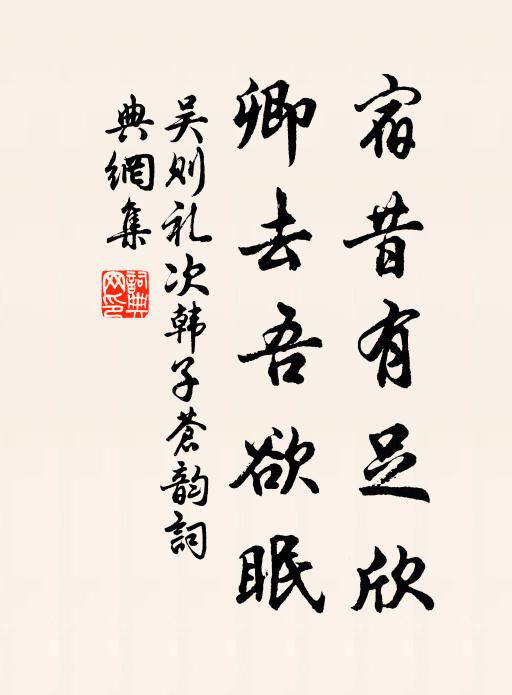 宿昔有足欣
卿去吾欲眠
吴则礼次韩子蒼韵詞
典網集
詞典网印